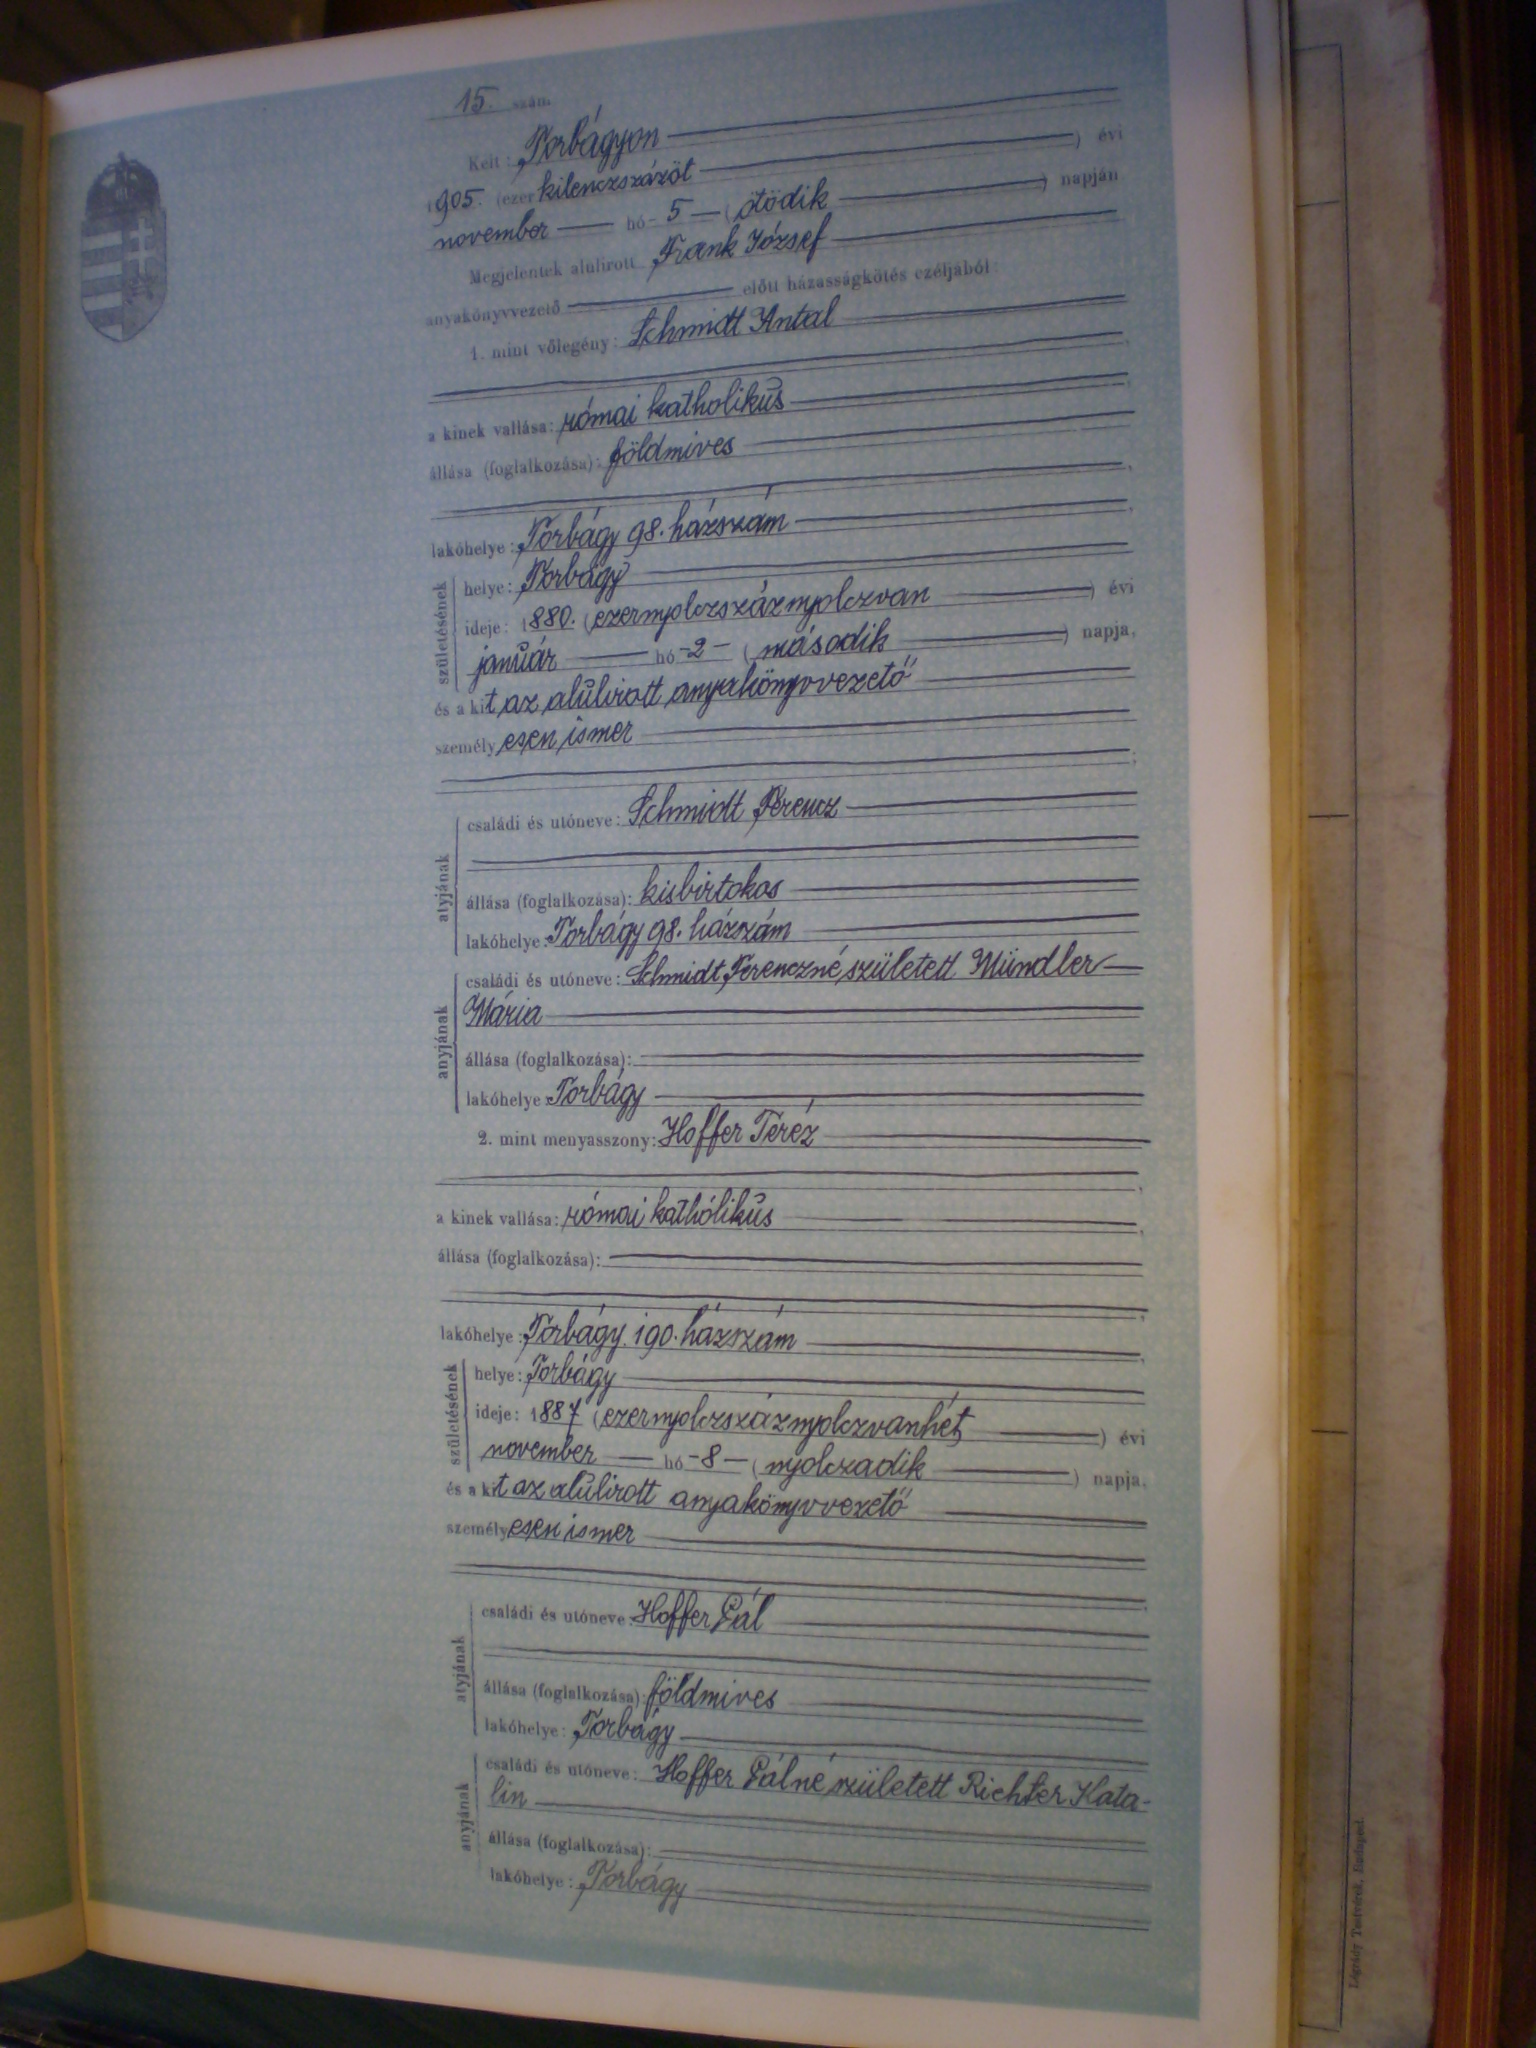 15. szám
Kelt: Torbágyon
1905. (ezer kilenczszázöt ) évi
november hó 5 (ötödik ) napján
Megjelentek alulirott Frank József
anyakönyvvezető előtt házasságkötés czéljából:
1. mint vőlegény: Schmidt Antal
a kinek vallása: római katholikus
állása (foglalkozása): földmives
lakóhelye: Torbágy 98. házszám
születésének
helye: Torbágy
ideje: 1880. (ezernyolczszáznyolczvan ) évi
január hó 2 (második ) napja,
és a kit az alulirott anyakönyvvezető
személyesen ismer
atyjának
családi és utóneve: Schmidt Ferencz
állása (foglalkozása): kisbirtokos
lakóhelye: Torbágy 98. házszám
anyjának
családi és utóneve: Schmidt Ferenczné született Mündler
Mária
állása (foglalkozása):
lakóhelye: Torbágy
2. mint menyasszony: Hoffer Teréz
a kinek vallása: római kathólikus
állása (foglalkozása):
lakóhelye: Torbágy 190. házszám
születésének
helye: Torbágy
ideje: 1887 (ezernyolczszáznyolczvanhét ) évi
november hó 8 (nyolczadik ) napja,
és a kit az alulirott anyakönyvvezető
személyesen ismer
atyjának
családi és utóneve: Hoffer Pál
állása (foglalkozása): földmives
lakóhelye: Torbágy
anyjának
családi és utóneve: Hoffer Pálné született Richter Kata-
lin
állása (foglalkozása):
lakóhelye: Torbágy
Légrády Testvérek, Budapest.